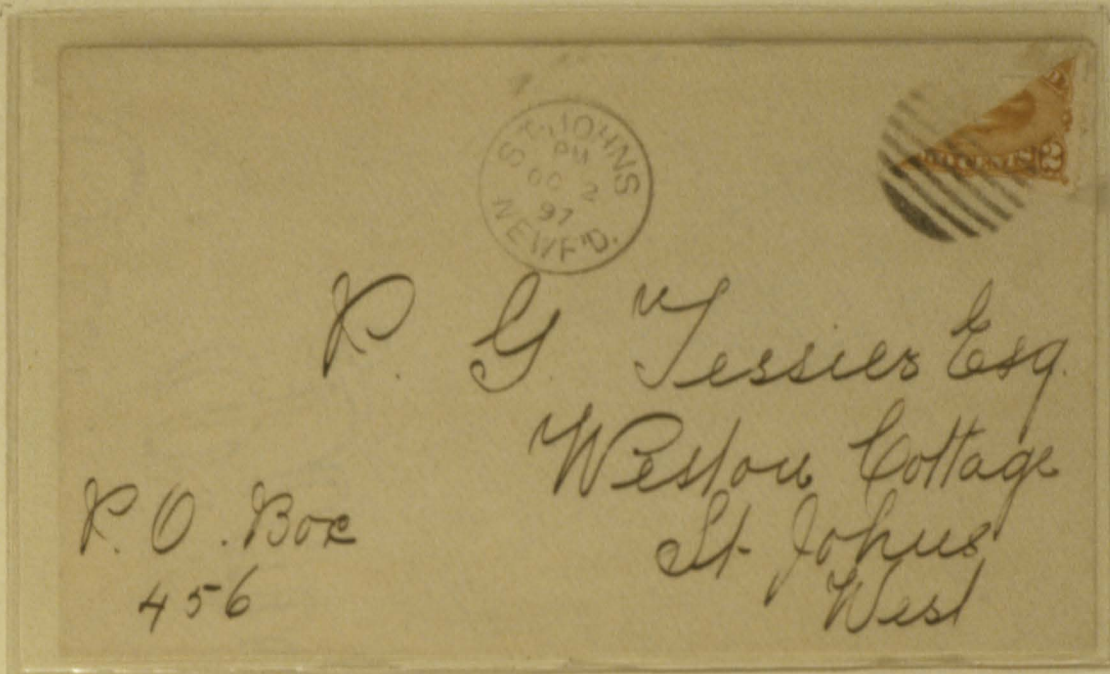 ST. JOHNS
PM
OC 2
97
NEWF'D.
2
P. G. Tessier Esq.
Weston Cottage
St. Johns
West
P. O. Box
456